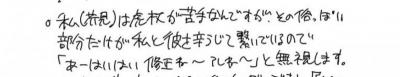 ○私(芥見)は虎杖が苦手なんですが、その俗っぽい
部分だけが私と彼を辛うじて繋いでいるので
「あーはいはい 修正ね〜アレね〜」と無視します。